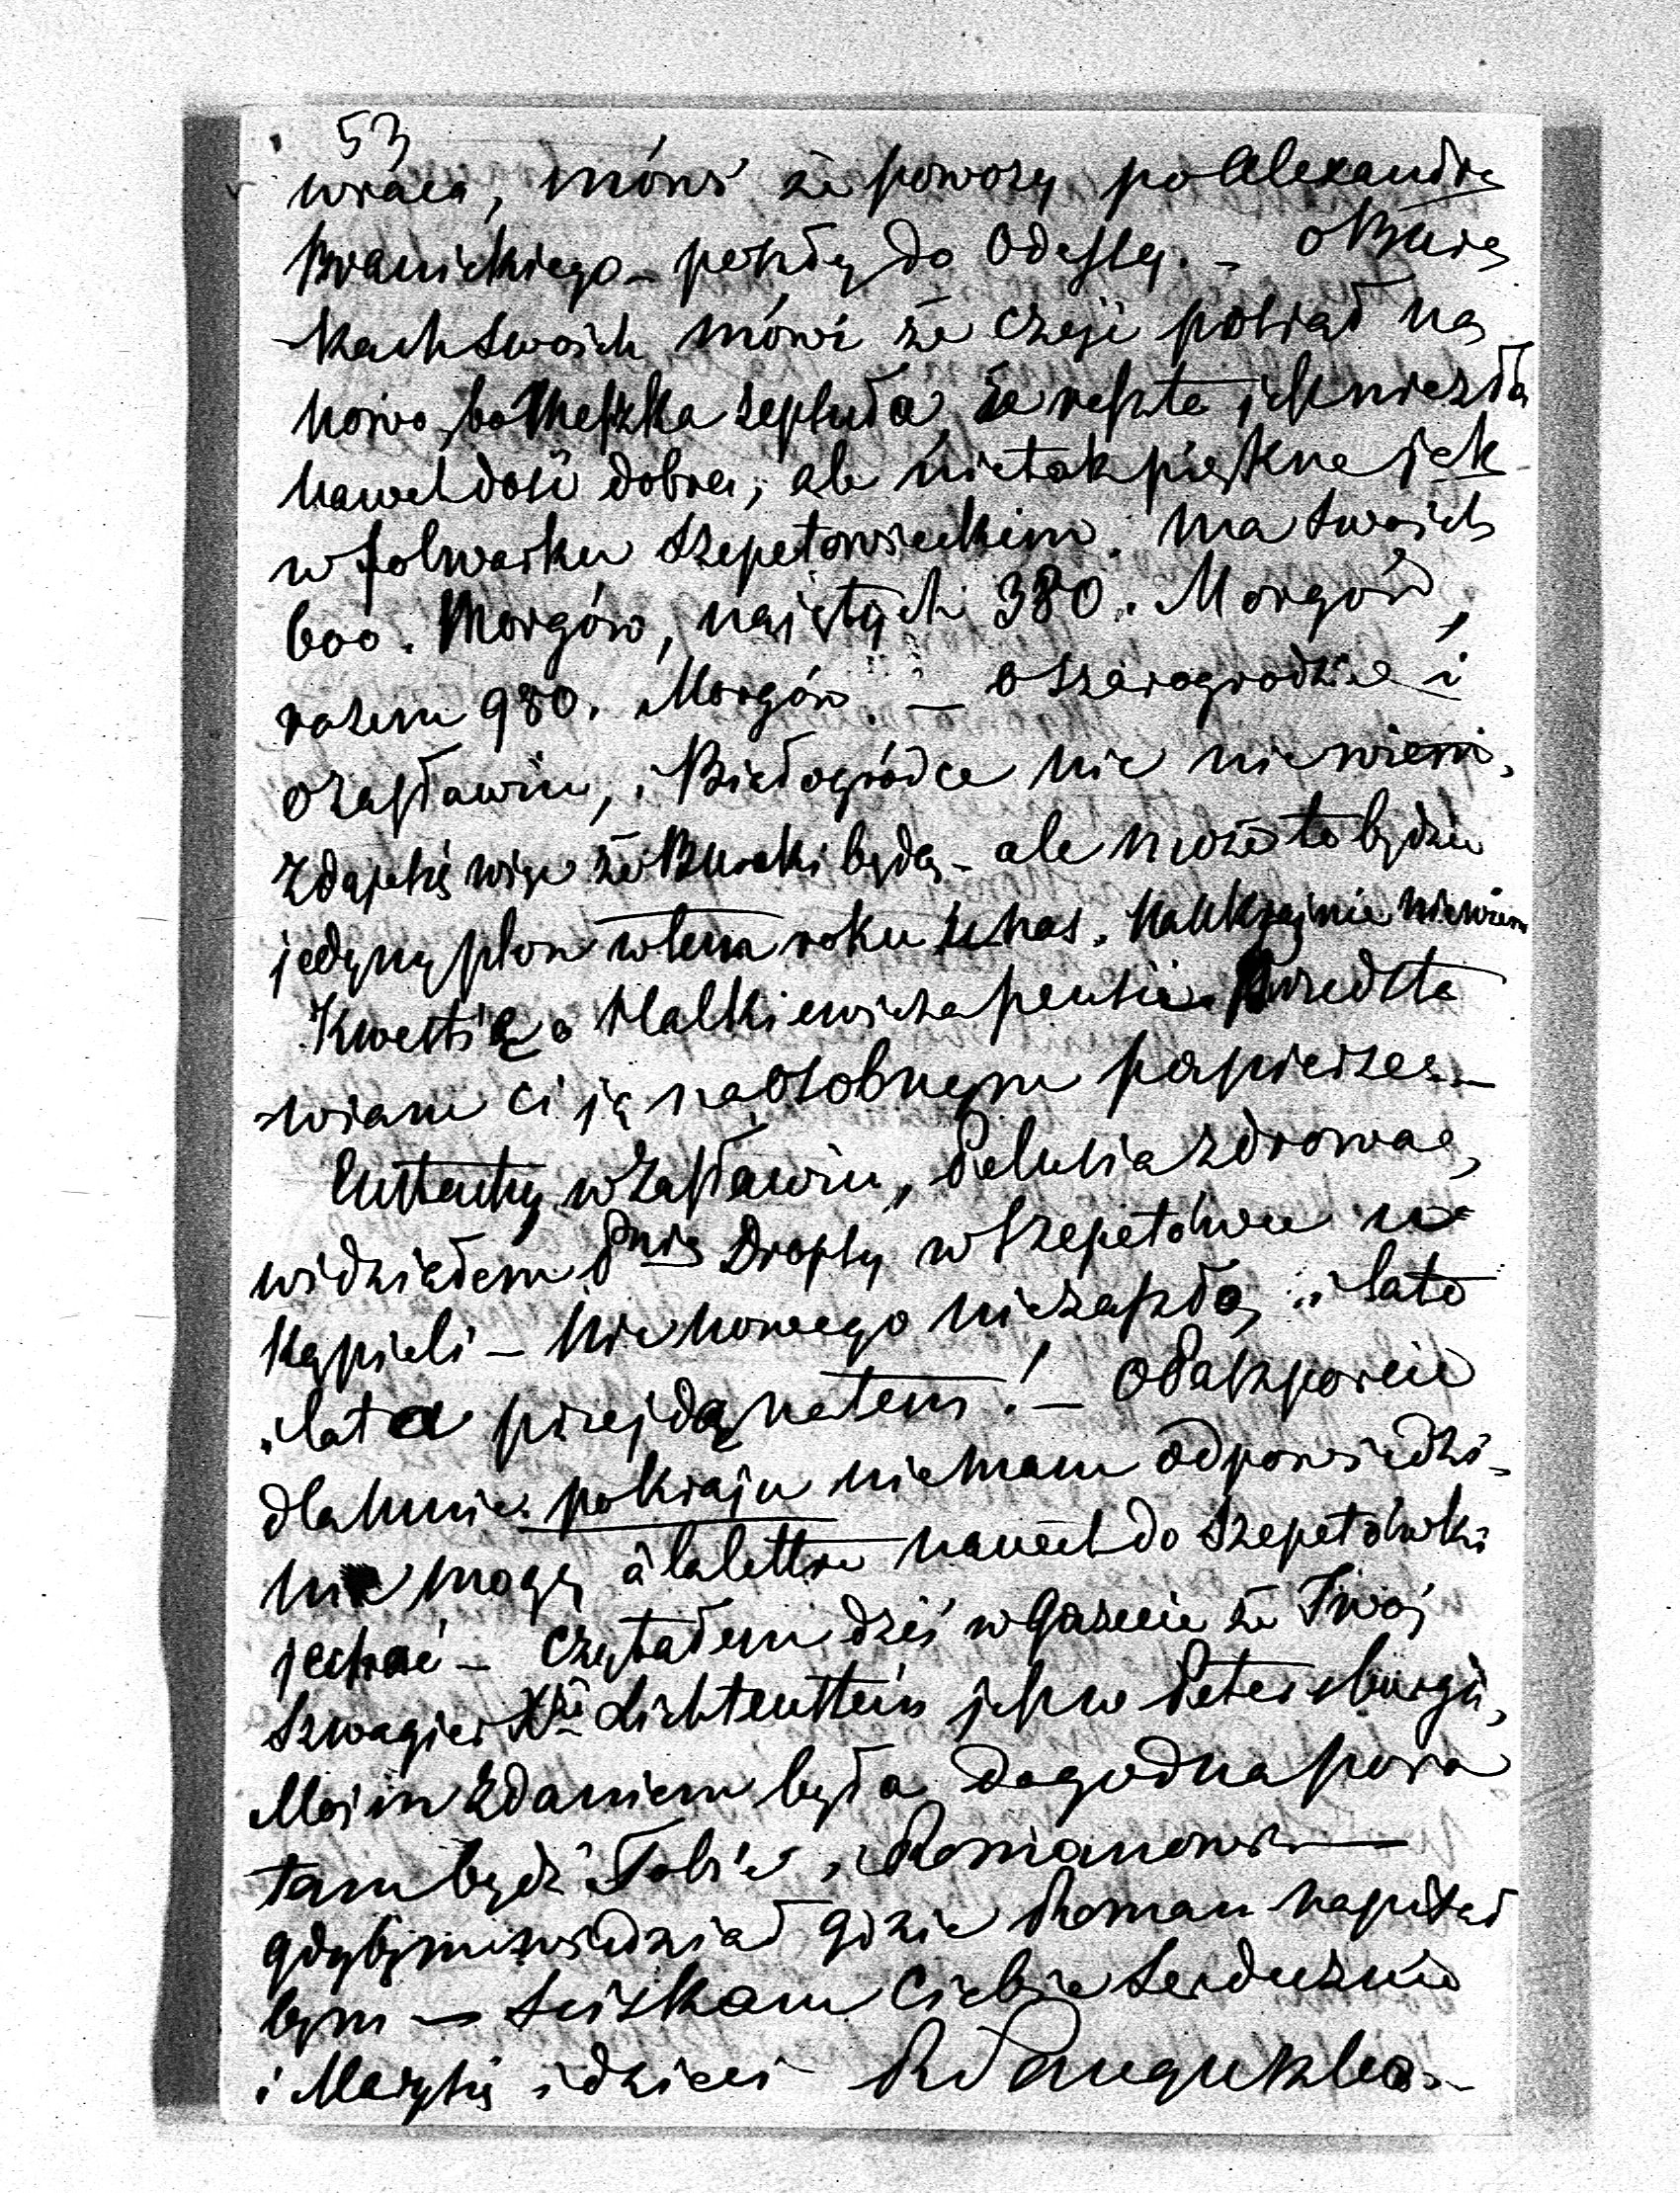 53
wraca, mówi że powozy po Alexandrze
Branickiego – poszły do Odessy. – o Bura
kach swoich mówi że część posiał na
nowo, bo Meszka zepsuła, że reszta jest niezła
nawet dość dobra, ale nie tak piękne jak
w folwarku Szepetowieckim. Ma swoich
600. Morgów, najętych 380. Morgów,
razem 980. Morgów. – o Szarogrodzie i
o Zasławiu, i Białogródce nic nie wiem.
Zdaje się więc że Buraki będą – ale może to będzie
jedyny plon w tem roku u nas. Na Ukrainie nie wiem
Kwestię o Malkiewicza pensie. Przedsta
wiam ci ją na osobnym papierze. –
Eustachy w Zasławiu, Pelusia zdrowa,
widziałem Pnią Dropsy w Szepetówce w
Kąpieli – Nic nowego nie zaszło, i lato
i lata przejdą na tem! – O Paszporcie
dla mnie po Kraju nie mam odpowiedzi –
nie mogę à la lettre nawet do Szepetówki
jechać – Czytałem dziś w Gazecie że Twój
Szwagier Xże Lichtenstein jest w Petersburgu,
Moim zdaniem była dogodna pora
tam być Tobie i Romanowi –
gdybym wiedział gdzie Roman napisał
bym – Ściskam Ciebie serdecznie
i Marysię i dzieci RSanguszko. –